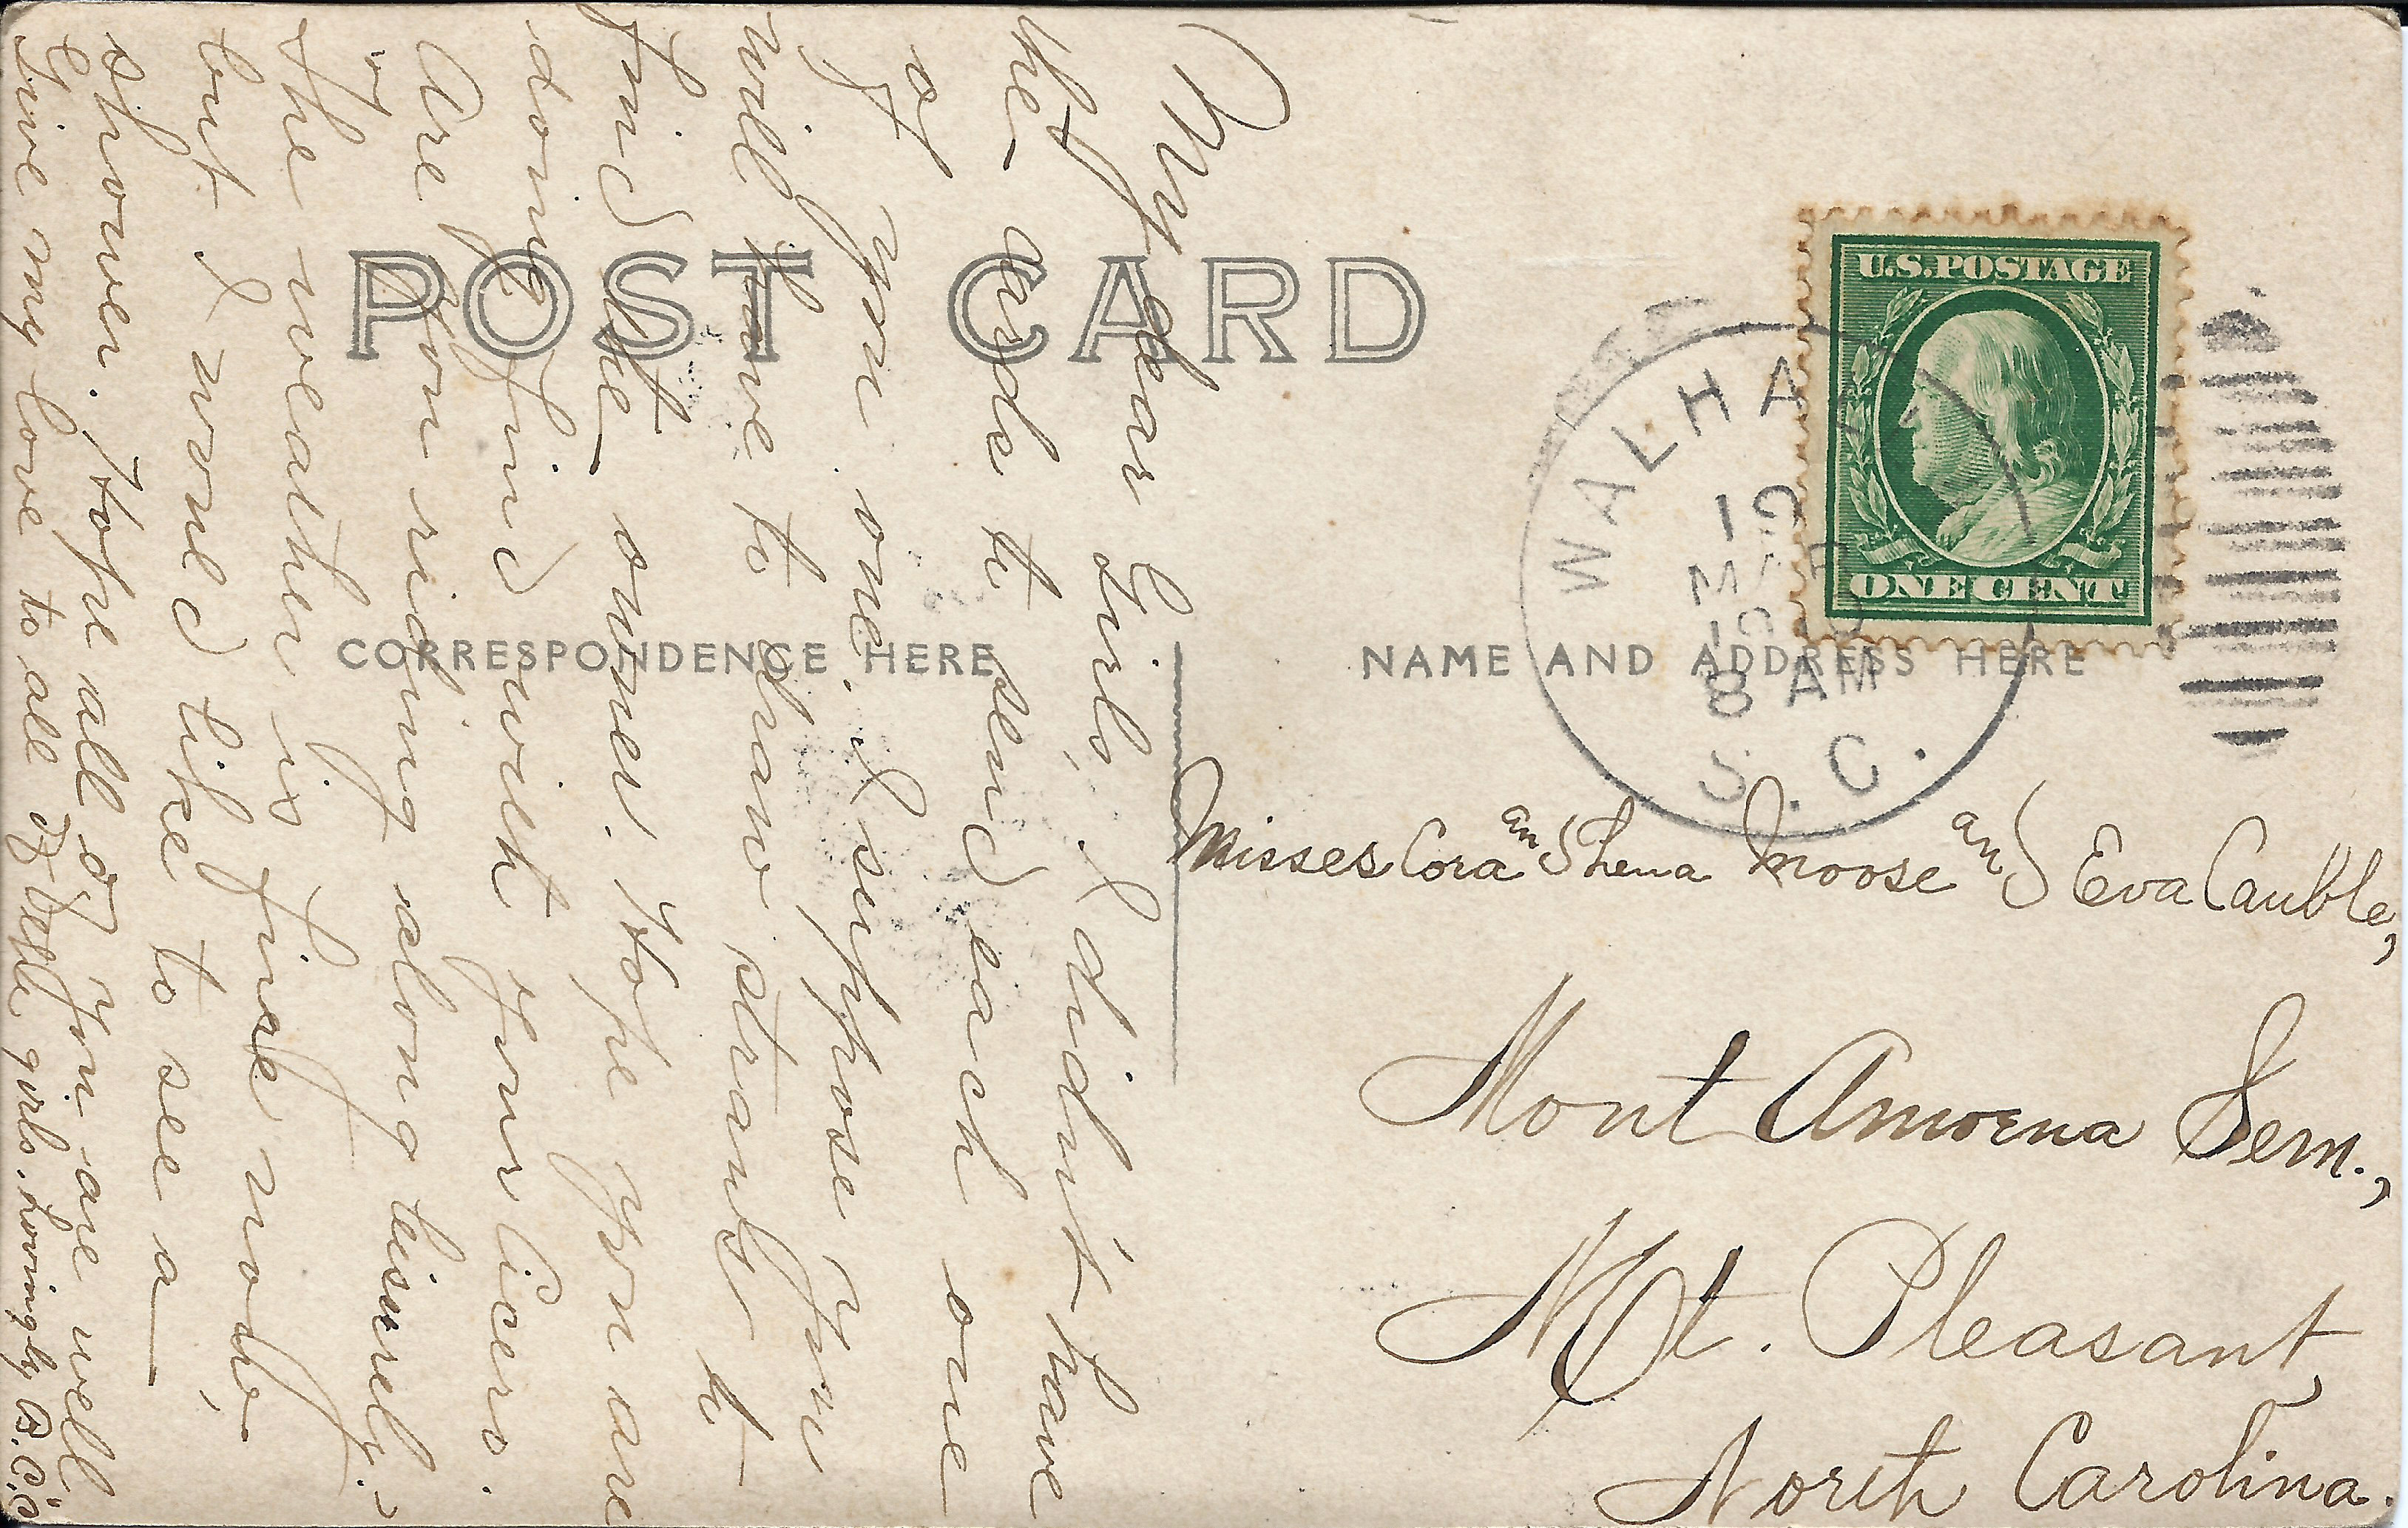 POST CARD
CORRESPONDENCE HERE
NAME AND ADDRESS HERE
U.S. POSTAGE
ONE CENT
WALHALLA
MAR
8 AM
S.C.
Misses Cora and Shena Moose and Eva Cauble,
Mont Amoena Sem.,
Mt. Pleasant,
North Carolina.
My dear Girls, I didn't have
the cards to send each one
of you one. I suppose you
will have to draw straws to
find the owner. Hope you are
doing fine with your Cicero.
Are you riding along leisurely?
The weather is fine now,
but I would like to see a
shower. Hope all of you are well
Give my love to all of the girls. Lovingly B.C.C.